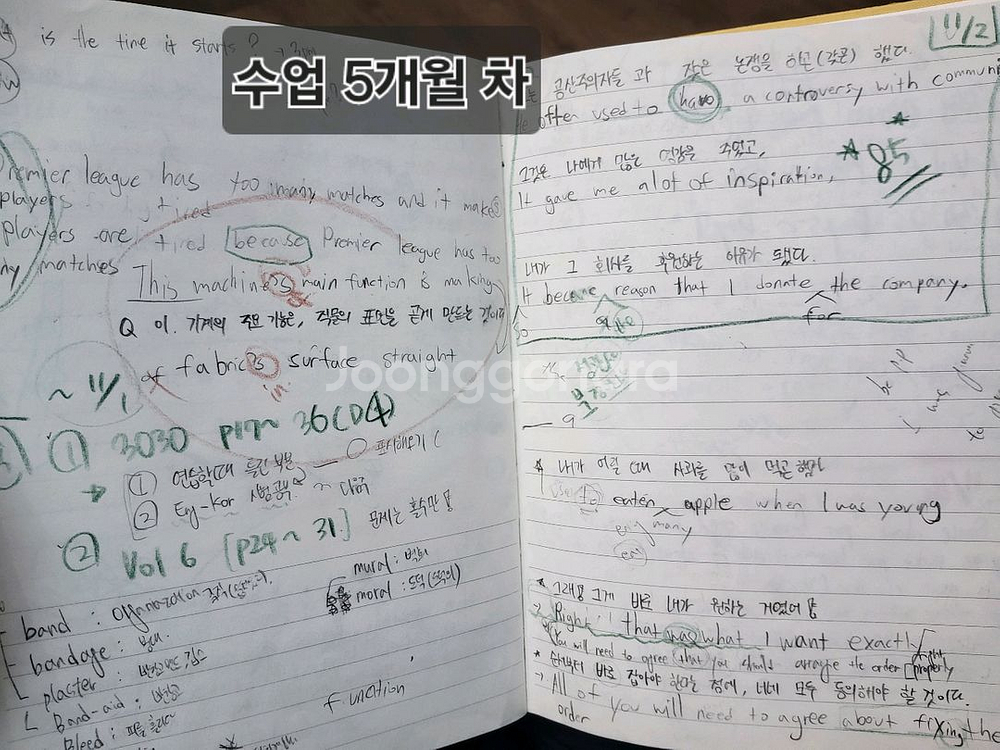 수업 5개월 차
is the time it starts?
Premier league has too many matches and it makes
players tired
players are tired because Premier league has too
matches
This machine's main function is making
Q 이 기계의 주요 기능은, 직물의 표면을 곧게 만드는 것이다
of fabric's surface straight
in
~ 11/1
① 3030 p17~36 (D4)
① 연습할때 틀린 부분 표시해오기
② Eng-Kor
② Vol 6 [p24~31] 문제는 홀수만!
mural : 벽화
moral : 도덕(도덕의)
band :
bandage : 붕대
plaster :
Band-aid :
Bleed :
function
11/2
공산주의자들과 잦은 논쟁을 하곤(갖곤) 했다.
He often used to have a controversy with communi
그것은 나에게 많은 영감을 주었고,
85
It gave me alot of inspiration,
내가 그 회사를 후원하는 이유가 됐다.
It became reason that I donate the company.
so
for
be pp
* 내가 어릴 때 사과를 많이 먹곤 했다
used to eaten apple when I was young
many
* 그래! 그게 바로 내가 원하는 거였어!
Right! that was what I want exactly
You will need to agree that you should arrange the order properly
* 순서부터 바로 잡아야 한다는 점에, 너네 모두 동의해야 할 것이다.
→ All of you will need to agree about fixing the
order
Joonggonara